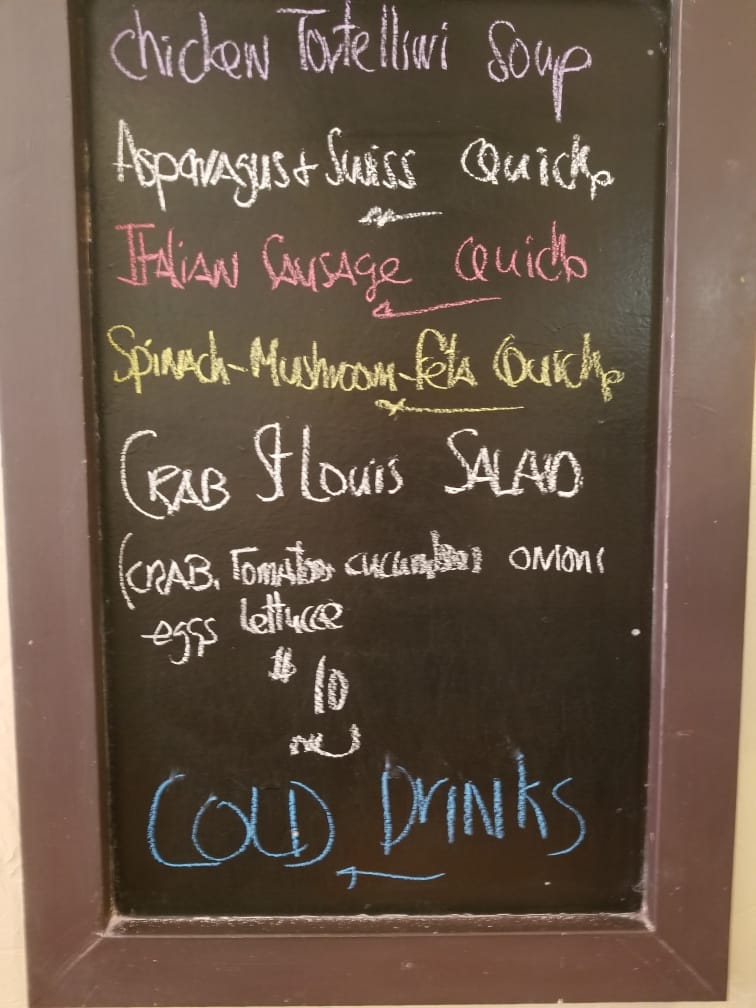 Chicken Tortellini Soup
Asparagus + Swiss Quiche
Italian Sausage Quiche
Spinach-Mushroom-Feta Quiche
CRAB St Louis SALAD
(CRAB, Tomatoes cucumbers onions
eggs lettuce
$10
COLD DRINKS